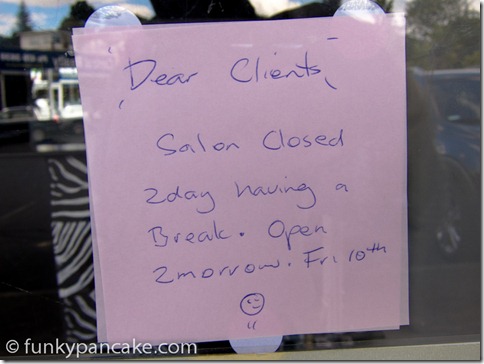 Dear Clients,
Salon Closed
2day having a
Break. Open
2morrow. Fri 10th
© funkypancake.com